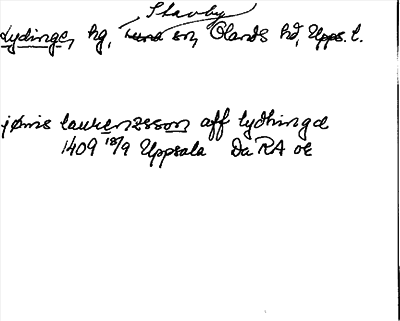 Stavby
Lydinge, hg, Tuna sn, Olands hd, Upps. l.
jønis laurensson aff lydhinge
1409 18/9 Uppsala Da RA oe